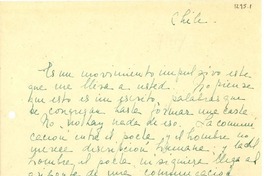 Chile.
Es un movimiento impulsivo este
que me lleva a usted. No piense
que esto es un escrito, palabras que
se congregan hasta formar una carta.
No, no hay nada de eso. La comuni-
cación entre el poeta y el hombre no
merece descripción humana. y
hombre, el poeta, ni siquiera llega al
de una comunicación